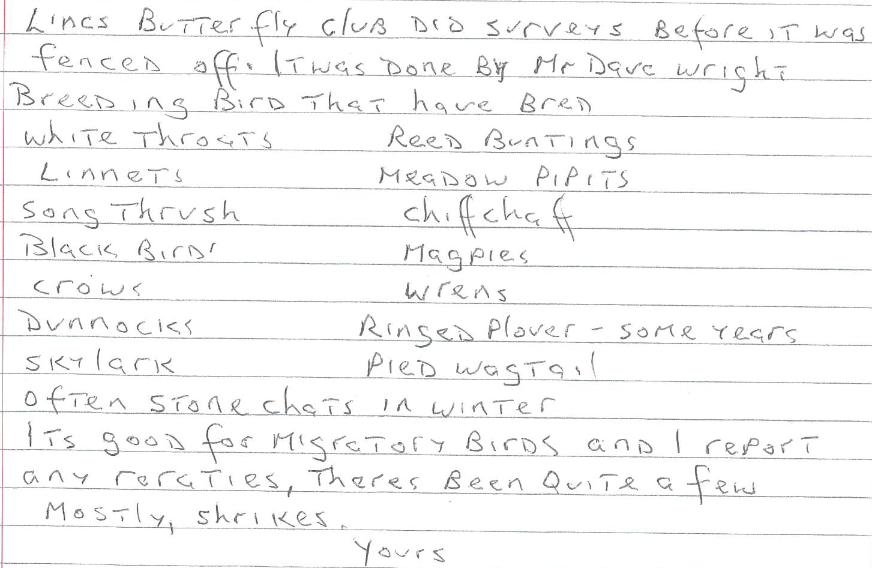 Lincs Butterfly club Did surveys Before it was
fenced off. It was Done By Mr Dave wright
Breeding Bird That have Bred
white Throats Reed Buntings
Linnets Meadow Pipits
Song Thrush chiffchaff
Black Bird' Magpies
crows wrens
Dunnocks Ringed Plover - some years
Skylark Pied wagtail
often stone chats in winter
Its good for Migratory Birds and I report
any rareties, Theres Been Quite a few
Mostly, shrikes.
Yours